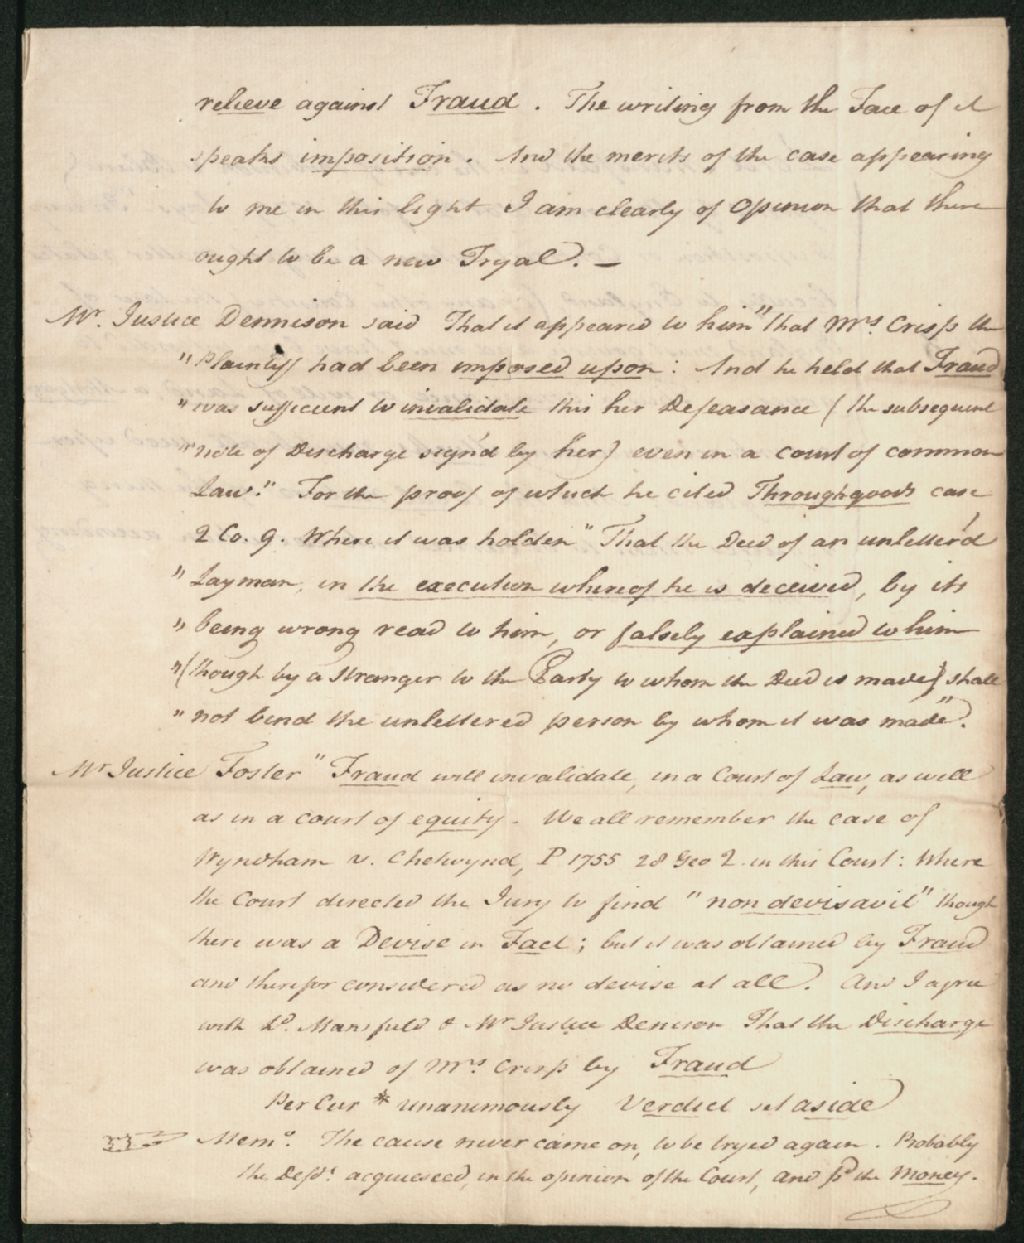 relieve against Fraud. The writing from the Face of it
speaks imposition. And the merits of the case appearing
to me in this light I am clearly of Opinion that there
ought to be a new Tryal. —
Mr. Justice Dennison said That it appeared to him "that Mrs Crisp the
" Plaintiff had been imposed upon: And he held that Fraud
" was sufficient to invalidate this her Defeasance (the subsequent
" note of Discharge sign'd by her) even in a court of common
Law." For the proof of which he cited Throughgoods case
2 Co. 9. Where it was holden "That the Deed of an unletter'd
" Layman, in the execution whereof he is deceived, by its
" being wrong read to him, or falsely explained to him
" (though by a Stranger to the Party to whom the Deed is made) shall
" not bind the unlettered person by whom it was made".
Mr Justice Foster "Fraud will invalidate, in a Court of Law, as well
as in a court of equity. We all remember the case of
Wyndham v. Chetwynd, P 1755 28 Geo 2. in this Court: Where
the Court directed the Jury to find "non devisavit" though
there was a Devise in Fact; but it was obtained by Fraud
and therefor considered as no devise at all. And I agree
with Ld. Mansfield & Mr Justice Denison That the Discharge
was obtained of Mrs Crisp by Fraud
Per Cur * unanimously Verdict set aside
Memo. The cause never came on, to be tryed again. Probably
the Deft. acquiesced, in the opinion of the Court, and pd the Money.